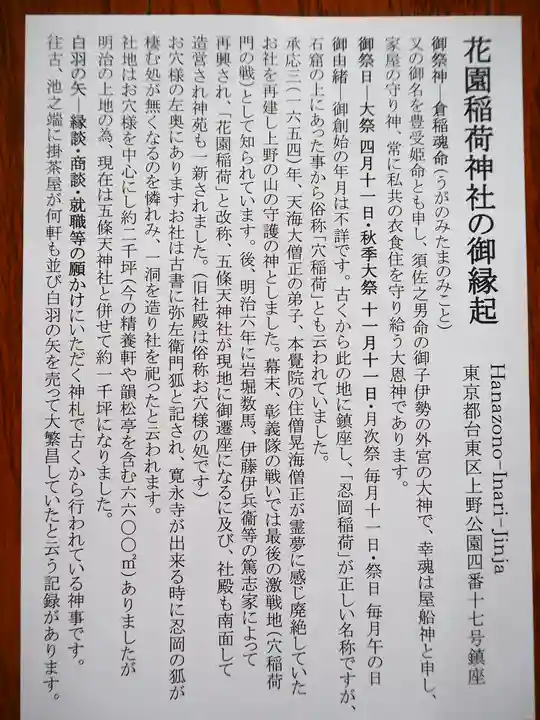 花園稲荷神社の御縁起
Hanazono-Inari-Jinja
東京都台東区上野公園四番十七号鎮座
御祭神―倉稲魂命(うがのみたまのみこと)
又の御名を豊受姫命とも申し、須佐之男命の御子伊勢の外宮の大神で、幸魂は屋船神と申し、
家屋の守り神、常に私共の衣食住を守り給う大恩神であります。
御祭日―大祭 四月十一日・秋季大祭 十一月十一日・月次祭 毎月十一日・祭日 毎月午の日
御由緒 御創始の年月は不詳です。古くから此の地に鎮座し、「忍岡稲荷」が正しい名称ですが、
石窟の上にあった事から俗称「穴稲荷」とも云われていました。
承応三(一六五四)年、天海大僧正の弟子、本覺院の住僧晃海僧正が霊夢に感じ廃絶していた
お社を再建し上野の山の守護の神としました。幕末、彰義隊の戦いでは最後の激戦地(穴稲荷
門の戦)として知られています。後、明治六年に岩堀数馬、伊藤伊兵衛等の篤志家によって
再興され、「花園稲荷」と改称、五條天神社が現地に御遷座になるに及び、社殿も南面して
造営され神苑も一新されました。(旧社殿は俗称お穴様の処です)
お穴様の左奥にありますお社は古書に弥左衛門狐と記され、寛永寺が出来る時に忍岡の狐が
棲む処が無くなるのを憐れみ、一洞を造り社を祀ったと云われます。
社地はお穴様を中心にし約二千坪(今の精養軒や韻松亭を含む六六〇〇㎡)ありましたが
明治の上地の為、現在は五條天神社と併せて約一千坪になりました。
白羽の矢―縁談・商談・就職等の願かけにいただく神札で古くから行われている神事です。
往古、池之端に掛茶屋が何軒も並び白羽の矢を売って大繁昌していたと云う記録があります。